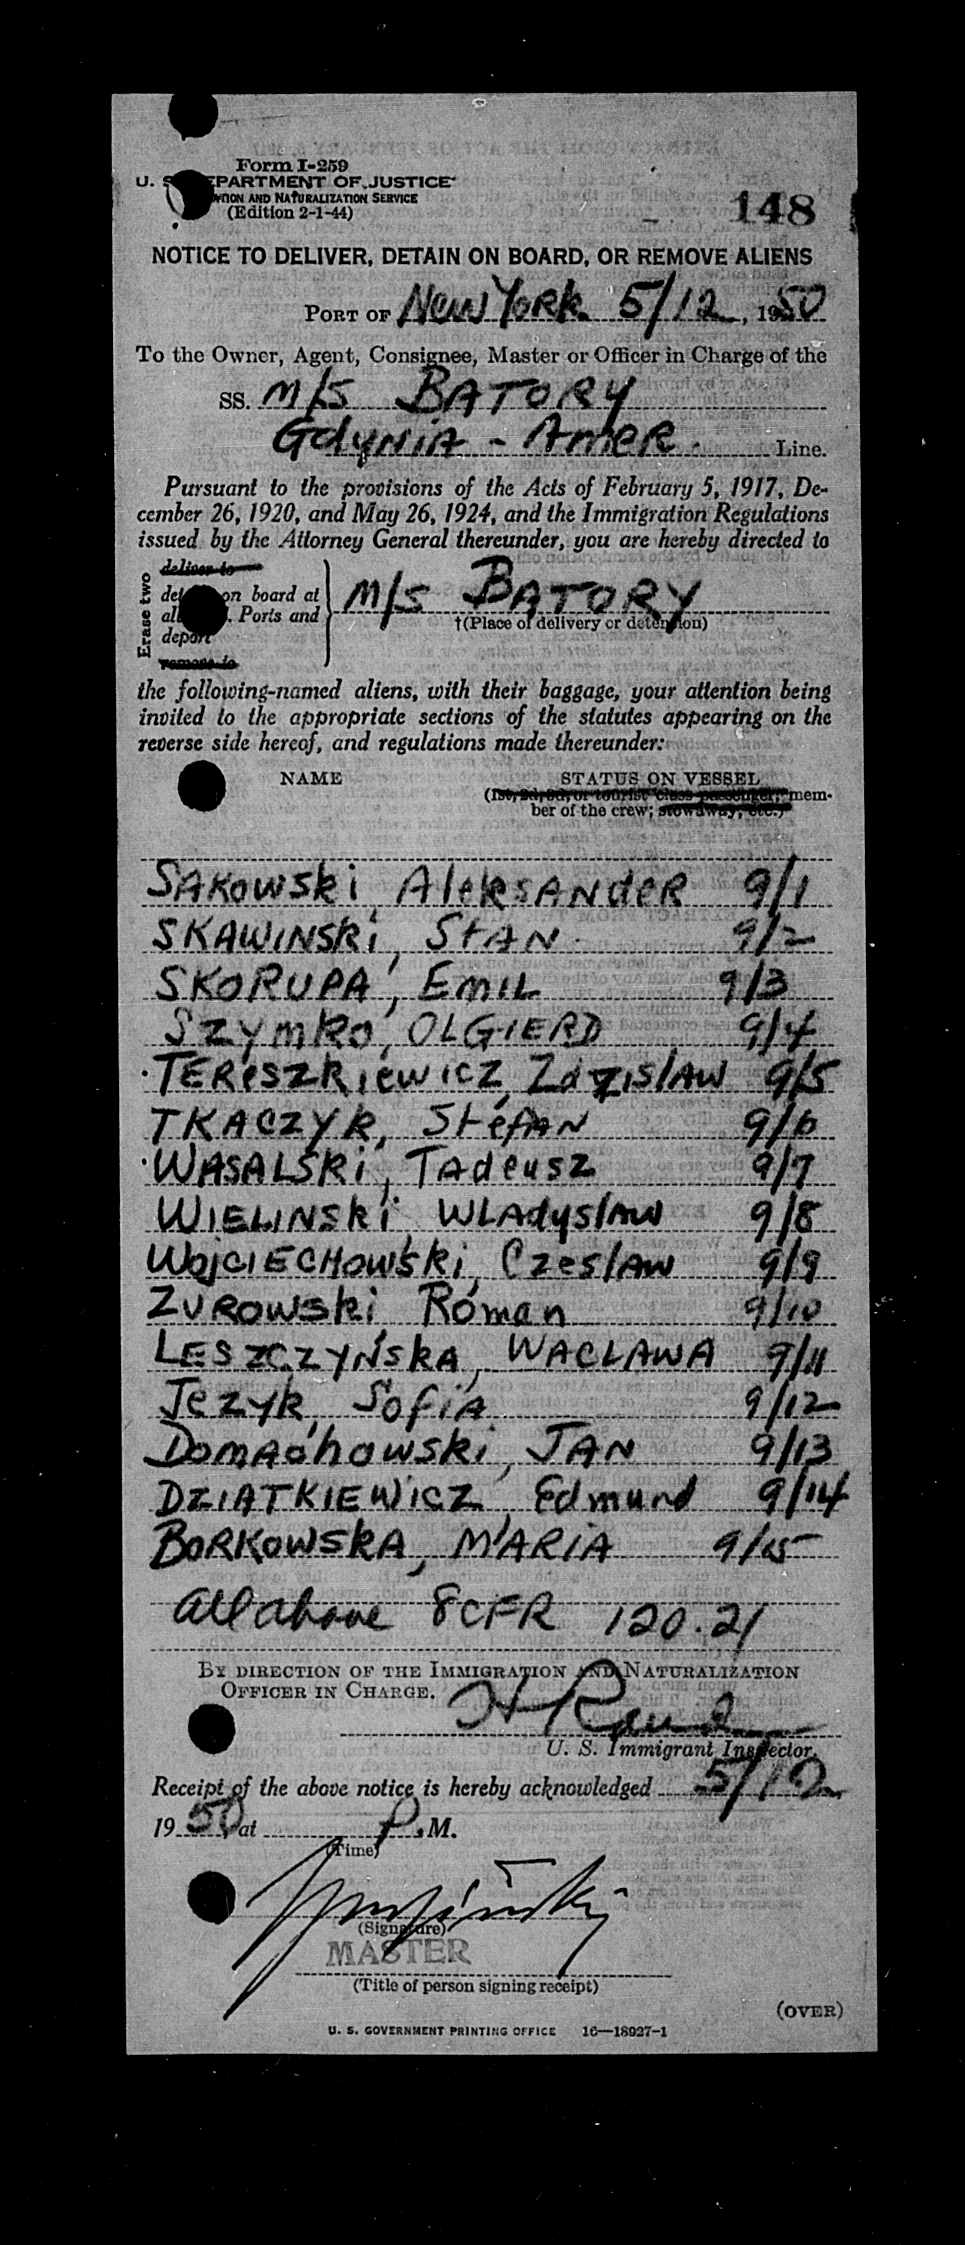 Form I-259
U. S. DEPARTMENT OF JUSTICE
AND NATURALIZATION SERVICE
(Edition 2-1-44)
148
NOTICE TO DELIVER, DETAIN ON BOARD, OR REMOVE ALIENS
PORT OF New York 5/12, 1950
To the Owner, Agent, Consignee, Master or Officer in Charge of the
SS. M/S BATORY
Gdynia - Amer. Line.
Pursuant to the provisions of the Acts of February 5, 1917, De-
cember 26, 1920, and May 26, 1924, and the Immigration Regulations
issued by the Attorney General thereunder, you are hereby directed to
Erase two
deliver to
on board at
Ports and
deport
remove to
M/S BATORY
†(Place of delivery or detention)
the following-named aliens, with their baggage, your attention being
invited to the appropriate sections of the statutes appearing on the
reverse side hereof, and regulations made thereunder:
NAME STATUS ON VESSEL
(1st, 2d, 3d, or tourist class passenger; mem-
ber of the crew; stowaway, etc.)
SAKOWSKI, ALEKSANDER 9/1
SKAWINSKI, STAN 9/2
SKORUPA, EMIL 9/3
SZYMKO, OLGIERD 9/4
TERESZKIEWICZ, ZDZISLAW 9/5
TKACZYK, STEFAN 9/6
WASALSKI, TADEUSZ 9/7
WIELINSKI WLADYSLAW 9/8
WOJCIECHOWSKI, CZESLAW 9/9
ZUROWSKI Roman 9/10
LESZCZYŃSKA, WACLAWA 9/11
JEZYK, SOFIA 9/12
DOMACHOWSKI, JAN 9/13
DZIATKIEWICZ Edmund 9/14
BORKOWSKA, MARIA 9/15
All above 8CFR 120.21
BY DIRECTION OF THE IMMIGRATION AND NATURALIZATION
OFFICER IN CHARGE.
U. S. Immigrant Inspector.
Receipt of the above notice is hereby acknowledged 5/12
1950, at P.M.
(Time)
(Signature)
MASTER
(Title of person signing receipt)
(OVER)
U. S. GOVERNMENT PRINTING OFFICE 16—18927-1